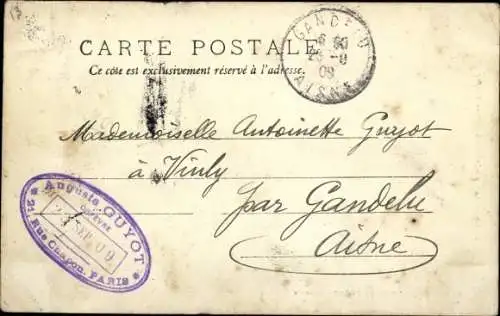 CARTE POSTALE
Ce côté est exclusivement réservé à l'adresse.
GANDELU
AISNE
Mademoiselle Antoinette Guyot
à Vinly
par Gandelu
Aisne
Auguste GUYOT
SEP 09
21, Rue Chapon, PARIS